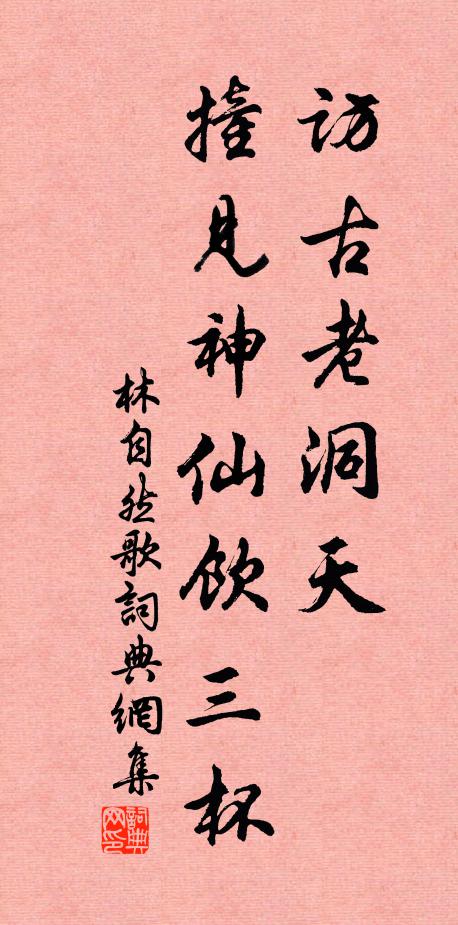 访古老洞天
撞见神仙饮三杯
林自然歌詞典網集
詞典
网印